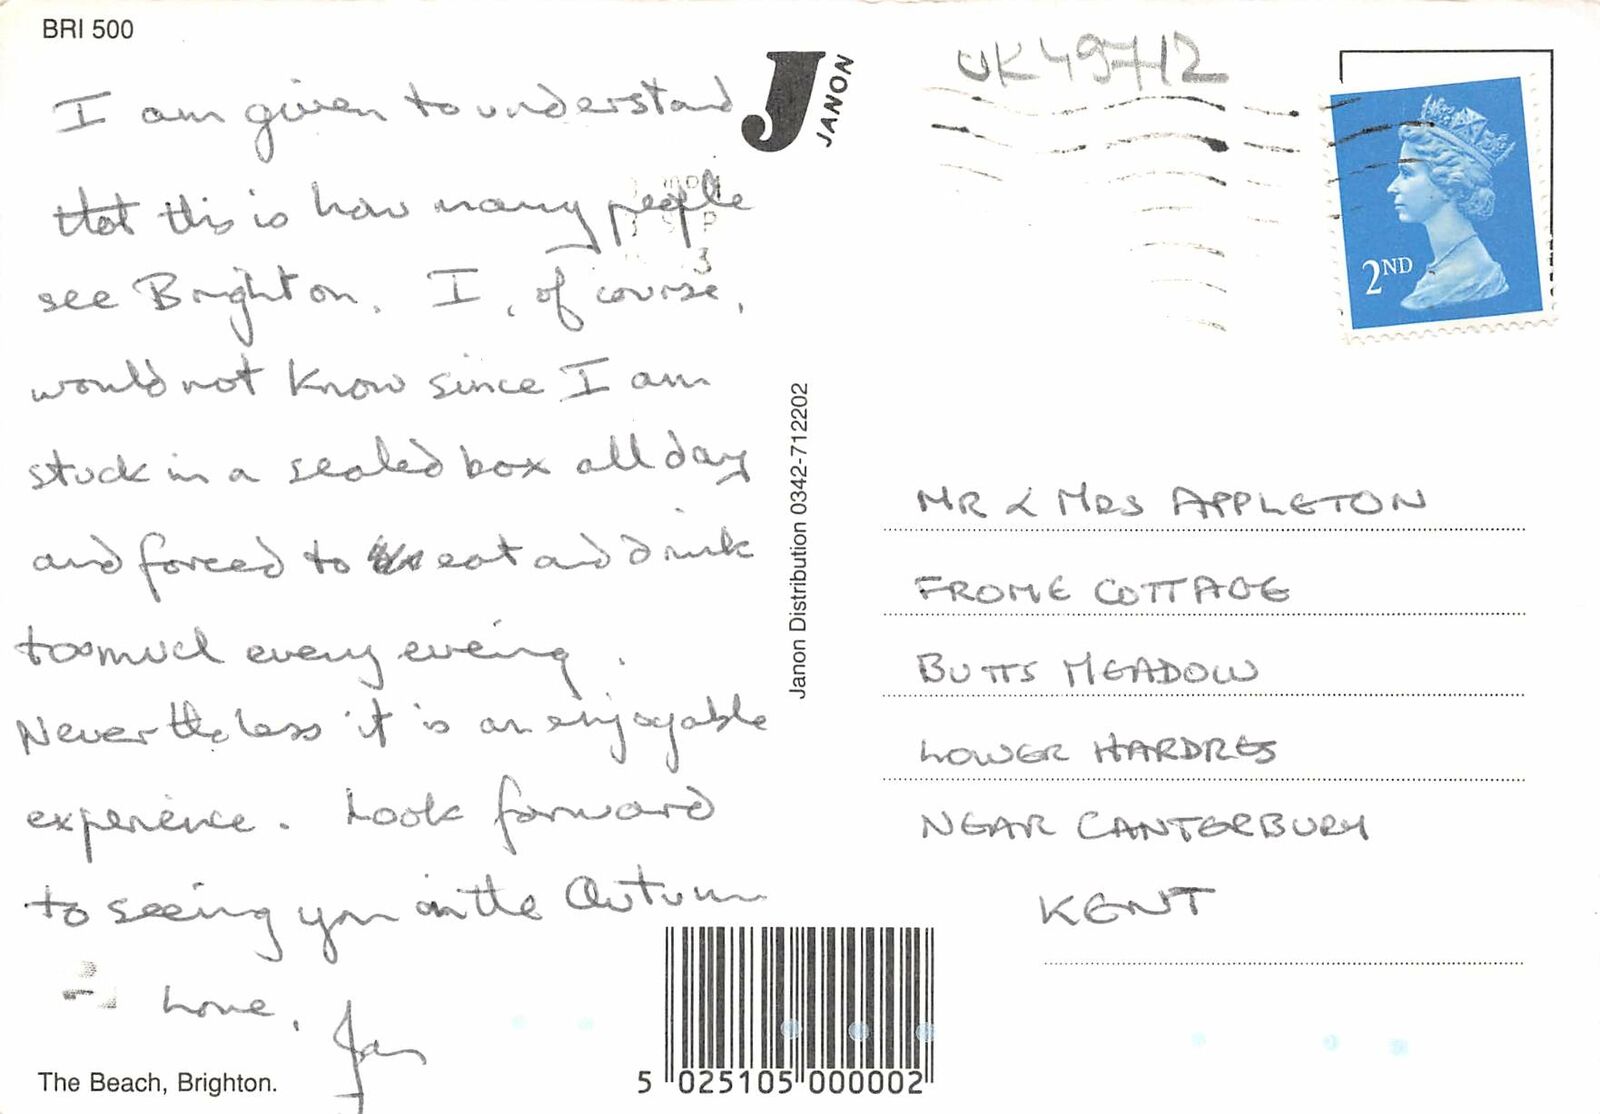 BRI 500
I am given to understand
that this is how many people
see Brighton. I, of course,
would not know since I am
stuck in a sealed box all day
and forced to eat and drink
too much every evening.
Nevertheless it is an enjoyable
experience. Look forward
to seeing you in the Autumn
Love,
Jan
The Beach, Brighton.
J JANON
Janon Distribution 0342-712202
5 025105 000002
UK49712
2ND
MR & MRS APPLETON
FROME COTTAGE
BUTTS MEADOW
LOWER HARDRES
NEAR CANTERBURY
KENT